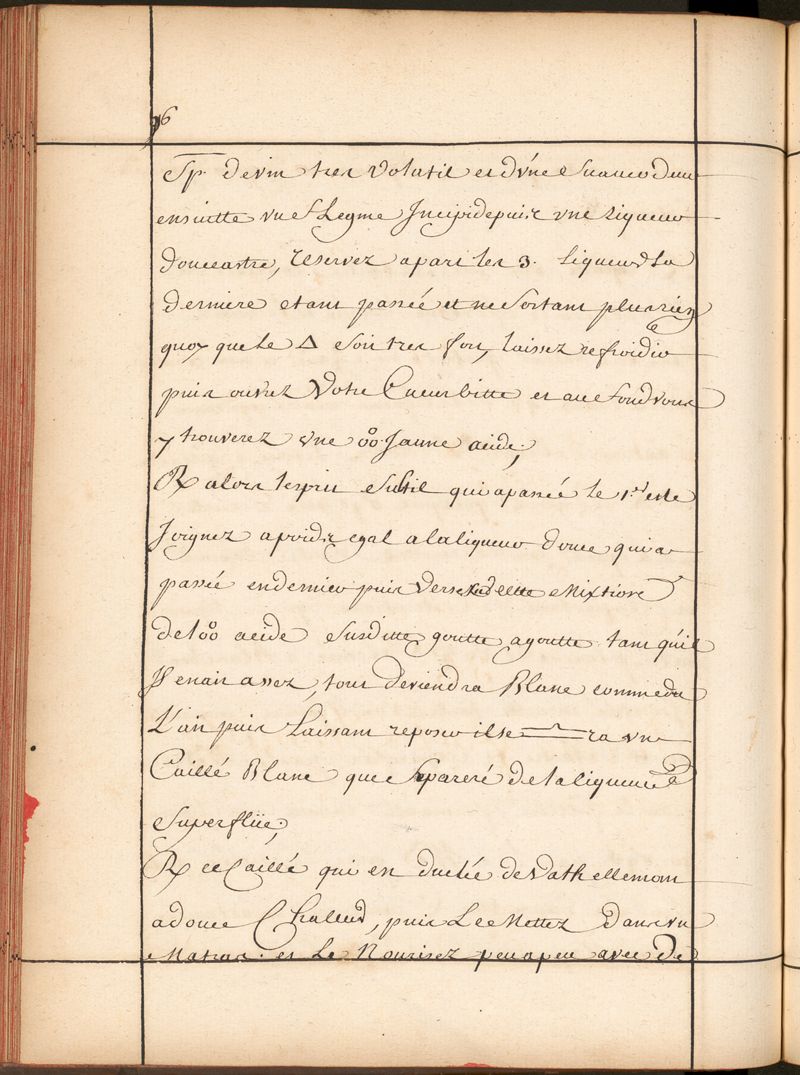 76
Sp. de vin tres volatil et d'vne
ensuitte vn flegme Jncipide puis vne liqueur
douceastre, reservez apart les 3. liqueurs La
derniere etant passée et ne sortant plus rien
quoy que le △ soit tres fort, laissez refroidir
puis ouvrez votre Cucurbitte et au fond vous
y trouverez vne jaune acide;
R alors lesprit subtil qui a passée le 1.er et le
Joignez a poids egal a la liqueur douce qui a
passée en dernier puis versez de cette Mixtion
de l' acide susditte goutte a goutte tant qu'il
y en ait assez, tout deviendra Blanc comme du
Lait puis Laissant reposer il se ra vn
Caillé Blanc que separeré de la liqueur
superflüe;
R ce Caillé qui en
a douce Chaleur, puis Le Mettez dans vn
Matras. et Le Nourisez peu a peu avec de